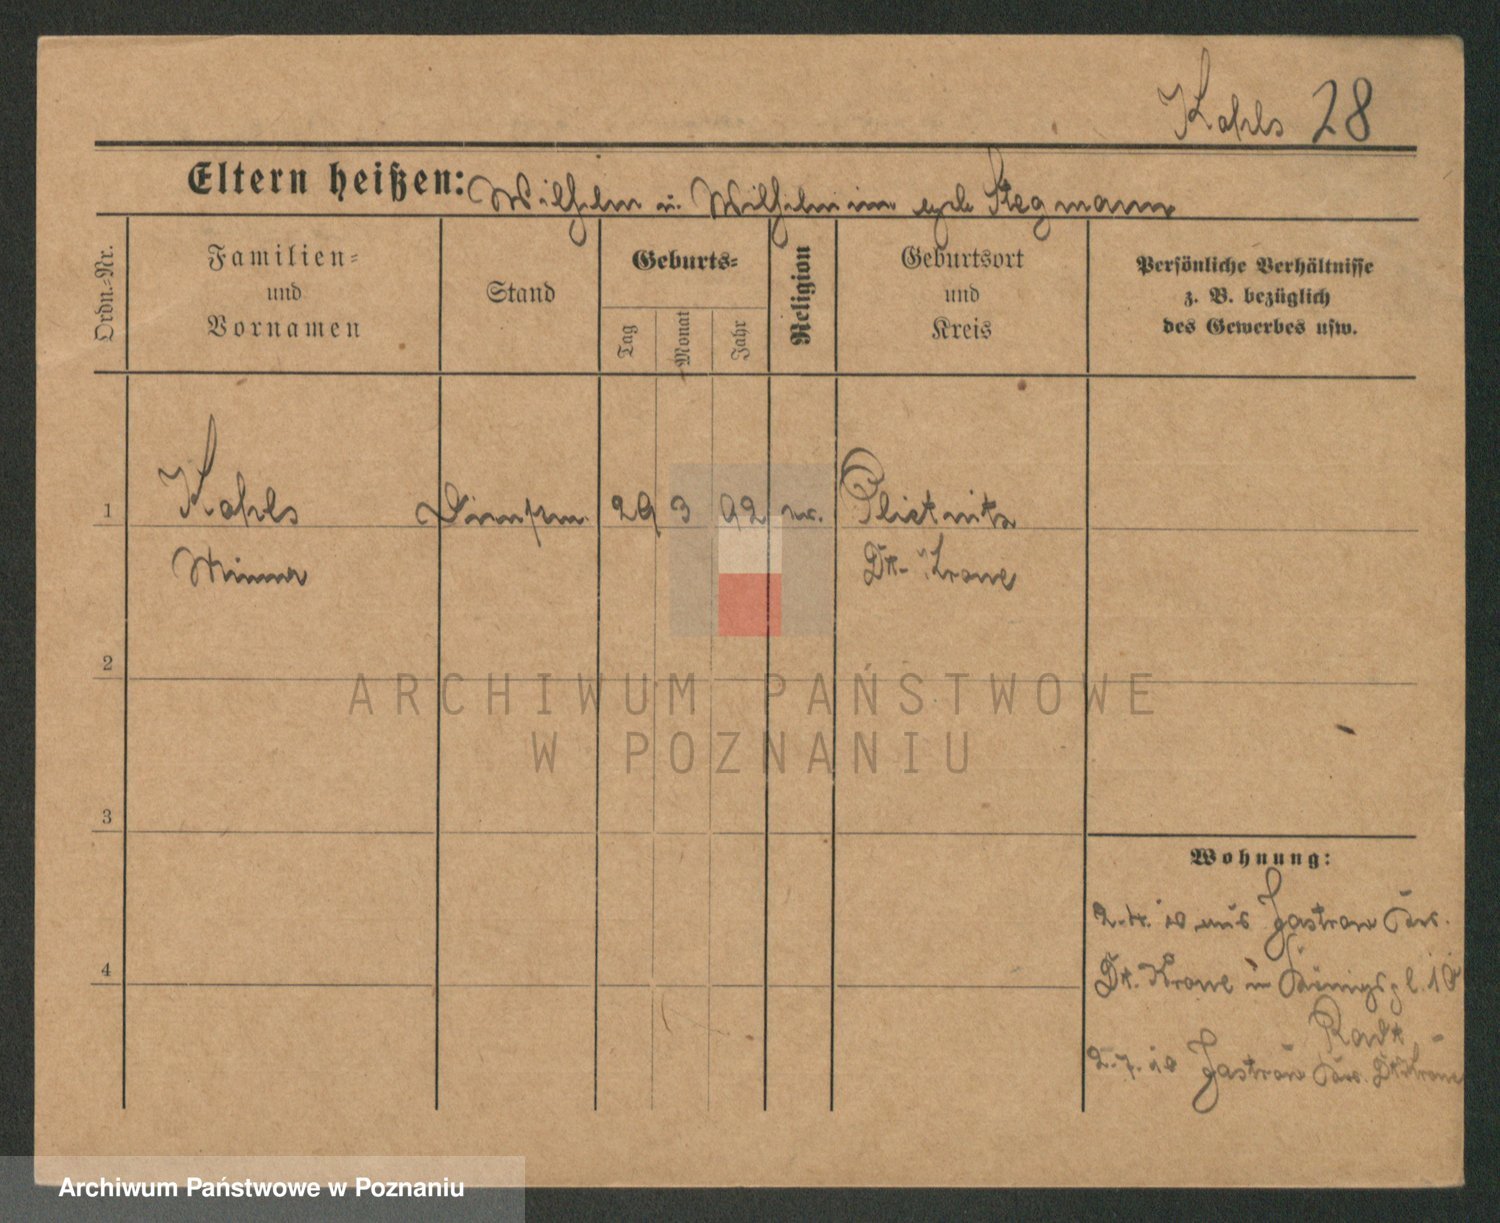 Kohls 28
Eltern heißen: Wilhelm u. Wilhelmine geb. Stegmann
Ordn.-Nr.
Familien-
und
Vornamen
Stand
Geburts-
Tag
Monat
Jahr
Religion
Geburtsort
und
Kreis
Persönliche Verhältnisse
z. B. bezüglich
des Gewerbes usw.
1 Kohls 29 3 92 ev. Plietnitz
Minna Dt. Krone
2
3
4
Wohnung:
2.4. aus Jastrow Krs.
Dt. Krone in Königspl. 10
2.7. Jastrow Krs. Dt Krone
ARCHIWUM PAŃSTWOWE
W POZNANIU
Archiwum Państwowe w Poznaniu